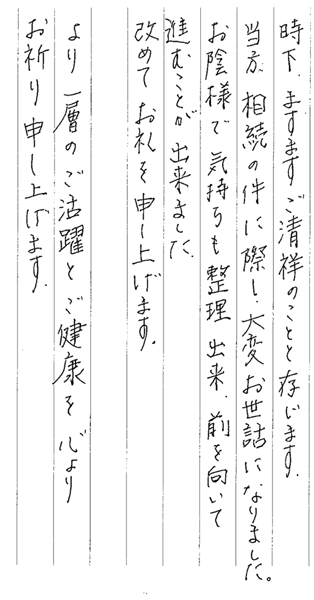 時下、ますますご清祥のことと存じます。
当方、相続の件に際し、大変お世話になりました。
お陰様で気持ちも整理出来、前を向いて
進むことが出来ました。
改めてお礼を申し上げます。
より一層のご活躍とご健康を心より
お祈り申し上げます。